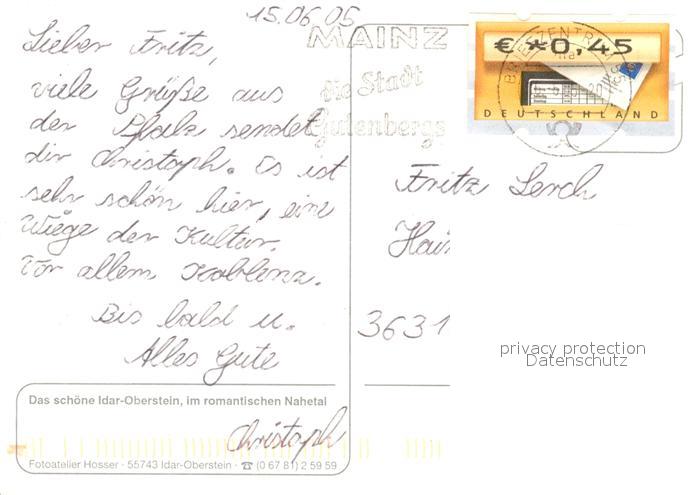 15.06.05
Lieber Fritz,
viele Grüße aus
der Pfalz sendet
dir Christoph. Es ist
sehr schön hier, eine
Wiege der Kultur.
Vor allem Koblenz.
Bis bald u.
Alles Gute
Christoph
MAINZ
die Stadt
Gutenbergs
€ *0,45
DEUTSCHLAND
BRIEFZENTRUM
Fritz Lerch
Hai
3631
privacy protection
Datenschutz
Das schöne Idar-Oberstein, im romantischen Nahetal
Fotoatelier Hosser · 55743 Idar-Oberstein · ☎ (0 67 81) 2 59 59